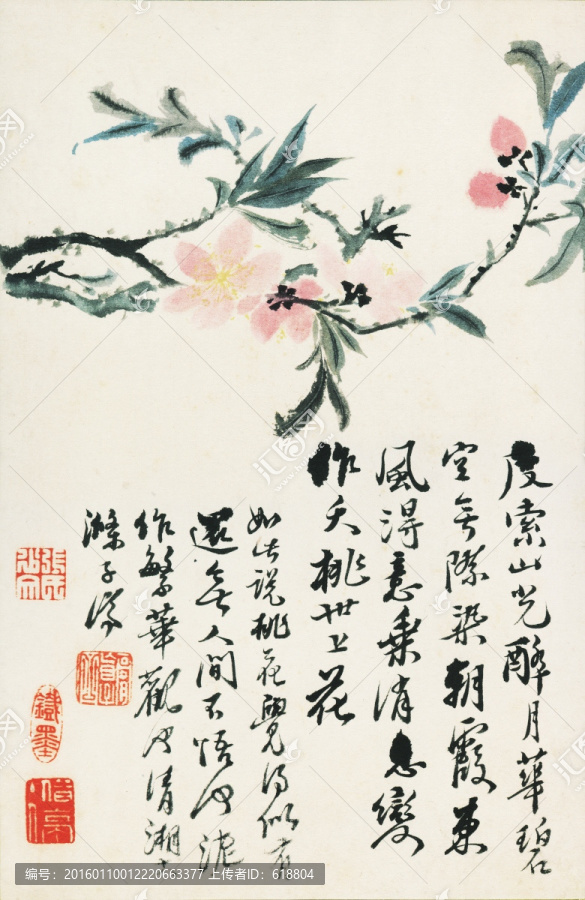 度索山光醉月華碧
空無際染朝霞東
風得意乘消息變
作夭桃世上花
如此說桃花覺得似有
還無人間不悟何泥
作繁華觀也清湘
滌子
编号：20160110012220663377 上传者ID：618804